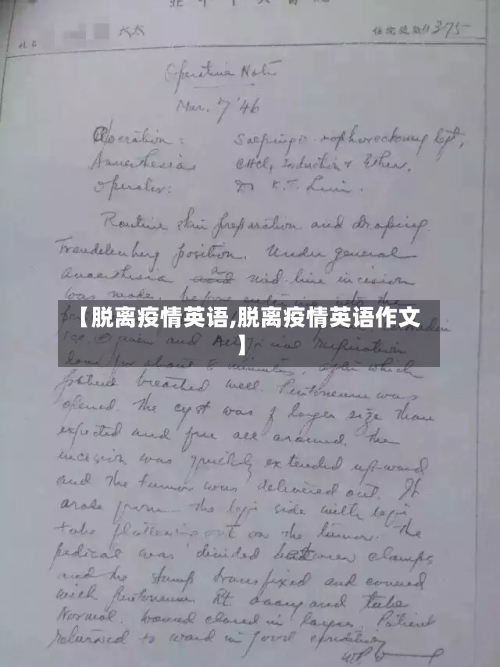 太太
住院號數 11375
Operative Note
Mar. 7 '46
Operation: Salpingo-oophorectomy left,
Anaesthesia CHCl, Induction & Ether,
Operator: Dr K.T.
Routine skin preparation and draping
Trendelenburg position. Under general
anaesthesia and mid-line incision
was made, before
【脱离疫情英语,脱离疫情英语作文
】
and respiration
done for about 6 minutes, after which
patient breathed well. Peritoneum was
opened. The cyst was of larger size than
expected and free all around. The
incision was quickly extended upward
and the tumor was delivered out. It
arose from the left side with left
tube flattening out on the tumor. The
pedicle was divided between clamps
and the stump transfixed and covered
with peritoneum Rt ovary and tube
Normal. Wound closed in layers. Patient
returned to ward in good condition